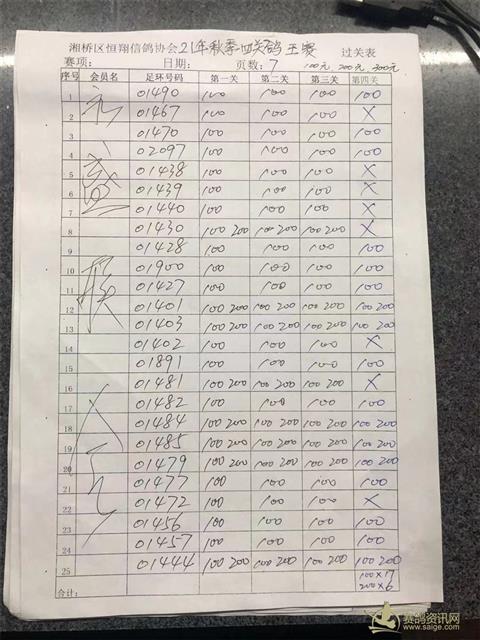 湘桥区恒翔信鸽协会21年秋季四关鸽王赛 过关表
赛项: 日期: 页数: 7 100元, 200元, 300元
序号 会员名 足环号码 第一关 第二关 第三关 第四关
1 01490 100 100 100 100
2 01467 100 100 100 X
3 01470 100 100 100 100
4 02097 100 100 100 100
5 01438 100 100 100 X
6 01439 100 100 100 X
7 01440 100 100 100 X
8 01430 100 200 100 200 100 200 X
9 01428 100 100 100 100
10 01900 100 100 100 100
11 01427 100 100 100 100
12 01401 100 200 100 200 100 200 100 200
13 01403 100 200 100 200 100 200 100 200
14 01402 100 100 100 X
15 01891 100 100 100 100
16 01481 100 200 100 200 100 200 X
17 01482 100 100 100 100
18 01484 100 200 100 200 100 200 100 200
19 01485 100 200 100 200 100 200 100 200
20 01479 100 200 100 200 100 200 100 200
21 01477 100 100 100 100
22 01472 100 100 100 X
23 01456 100 100 100 100
24 01457 100 100 100 100
25 01444 100 200 100 200 100 200 100 200
合计: 100X17
200X6
赛鸽资讯网
www.saige.com